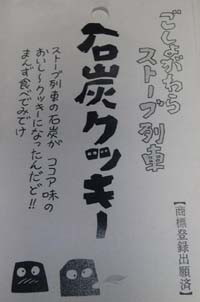 ごしょがわら
ストーブ列車
石炭クッキー
ストーブ列車の石炭が ココア味の
おいし〜クッキーになったんだど!!
まんず食べでみでけ
【商標登録出願済】